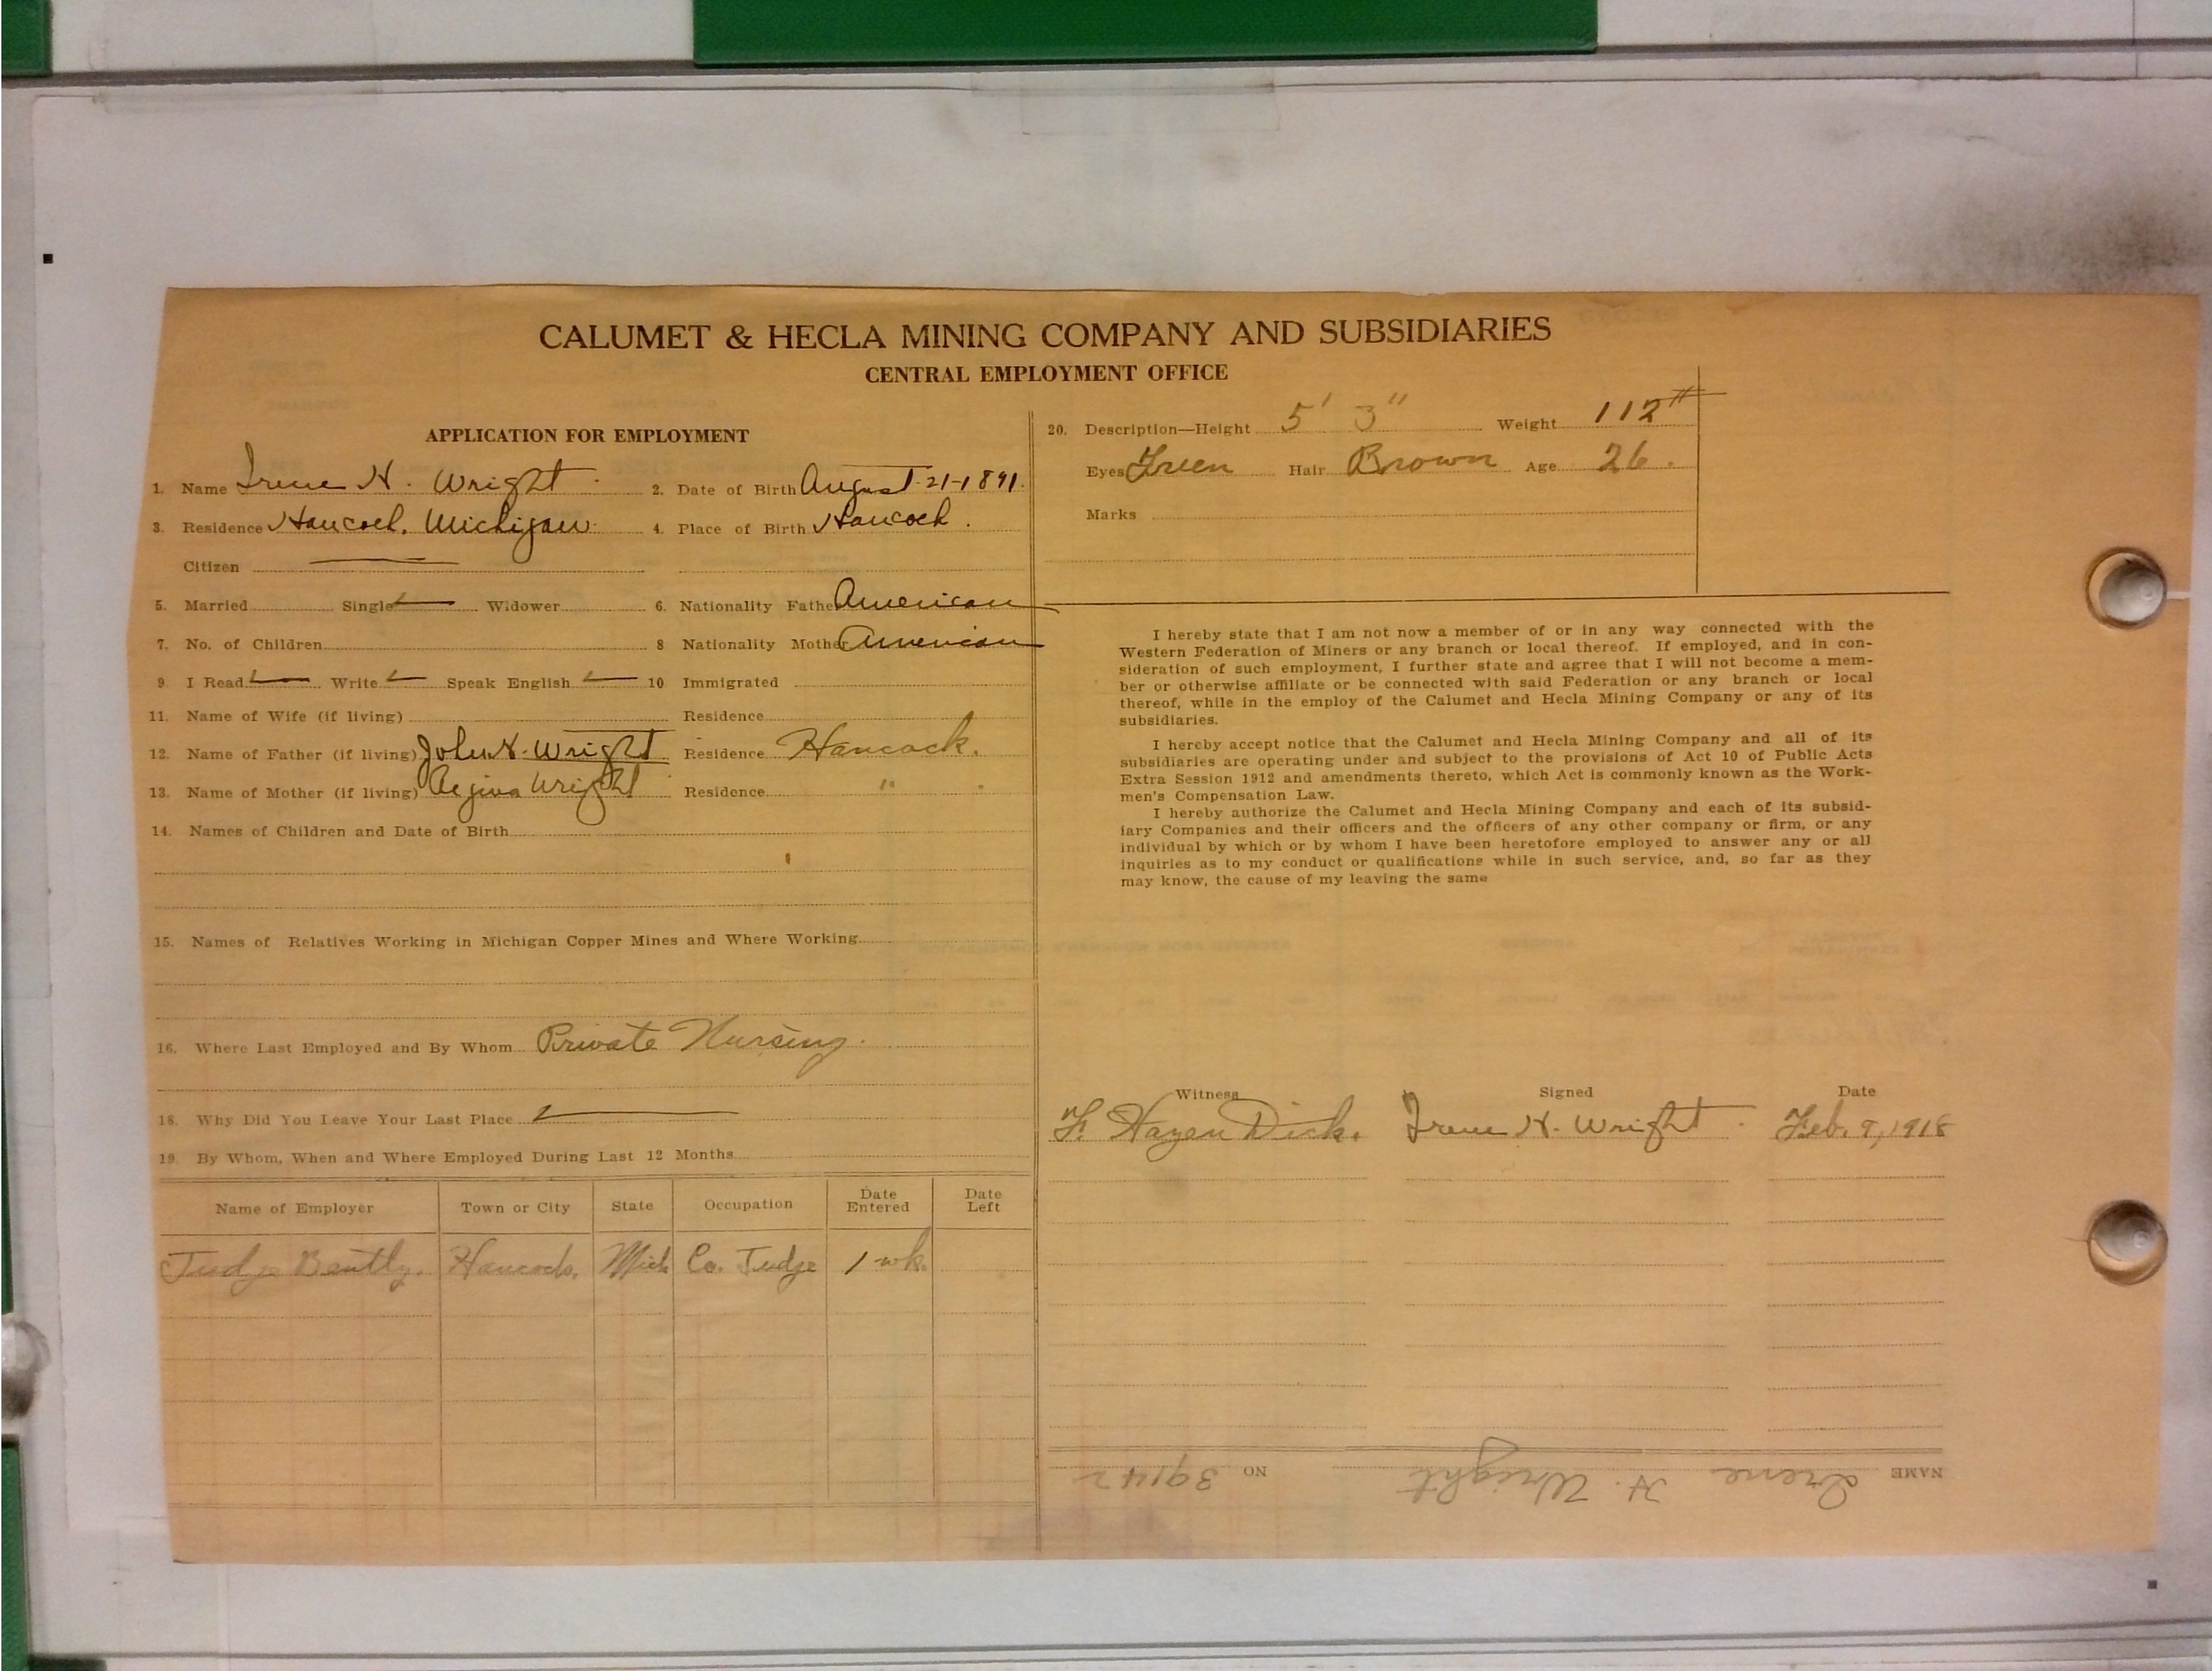 CALUMET & HECLA MINING COMPANY AND SUBSIDIARIES
CENTRAL EMPLOYMENT OFFICE
APPLICATION FOR EMPLOYMENT
1. Name Irene H. Wright. 2. Date of Birth August-21-1891.
3. Residence Hancock, Michigan. 4. Place of Birth Hancock.
Citizen
5. Married Single Widower 6. Nationality Father American
7. No. of Children 8 Nationality Mother American
9 I Read Write Speak English 10 Immigrated
11. Name of Wife (if living) Residence
12. Name of Father (if living) John H. Wright Residence Hancock.
13. Name of Mother (if living) Regina Wright Residence "
14. Names of Children and Date of Birth
15. Names of Relatives Working in Michigan Copper Mines and Where Working
16. Where Last Employed and By Whom Private Nursing.
18. Why Did You Leave Your Last Place
19. By Whom, When and Where Employed During Last 12 Months
Name of Employer Town or City State Occupation Date Entered Date Left
Judge Bently. Hancock. Mich Co. Judge 1 wk.
20. Description—Height 5' 3" Weight 112#
Eyes Green Hair Brown Age 26.
Marks
I hereby state that I am not now a member of or in any way connected with the
Western Federation of Miners or any branch or local thereof. If employed, and in con-
sideration of such employment, I further state and agree that I will not become a mem-
ber or otherwise affiliate or be connected with said Federation or any branch or local
thereof, while in the employ of the Calumet and Hecla Mining Company or any of its
subsidiaries.
I hereby accept notice that the Calumet and Hecla Mining Company and all of its
subsidiaries are operating under and subject to the provisions of Act 10 of Public Acts
Extra Session 1912 and amendments thereto, which Act is commonly known as the Work-
men's Compensation Law.
I hereby authorize the Calumet and Hecla Mining Company and each of its subsid-
iary Companies and their officers and the officers of any other company or firm, or any
individual by which or by whom I have been heretofore employed to answer any or all
inquiries as to my conduct or qualifications while in such service, and, so far as they
may know, the cause of my leaving the same
Witness Signed Date
F. Hazen Dick. Irene H. Wright. Feb. 9, 1918
NAME Irene H. Wright NO 39142